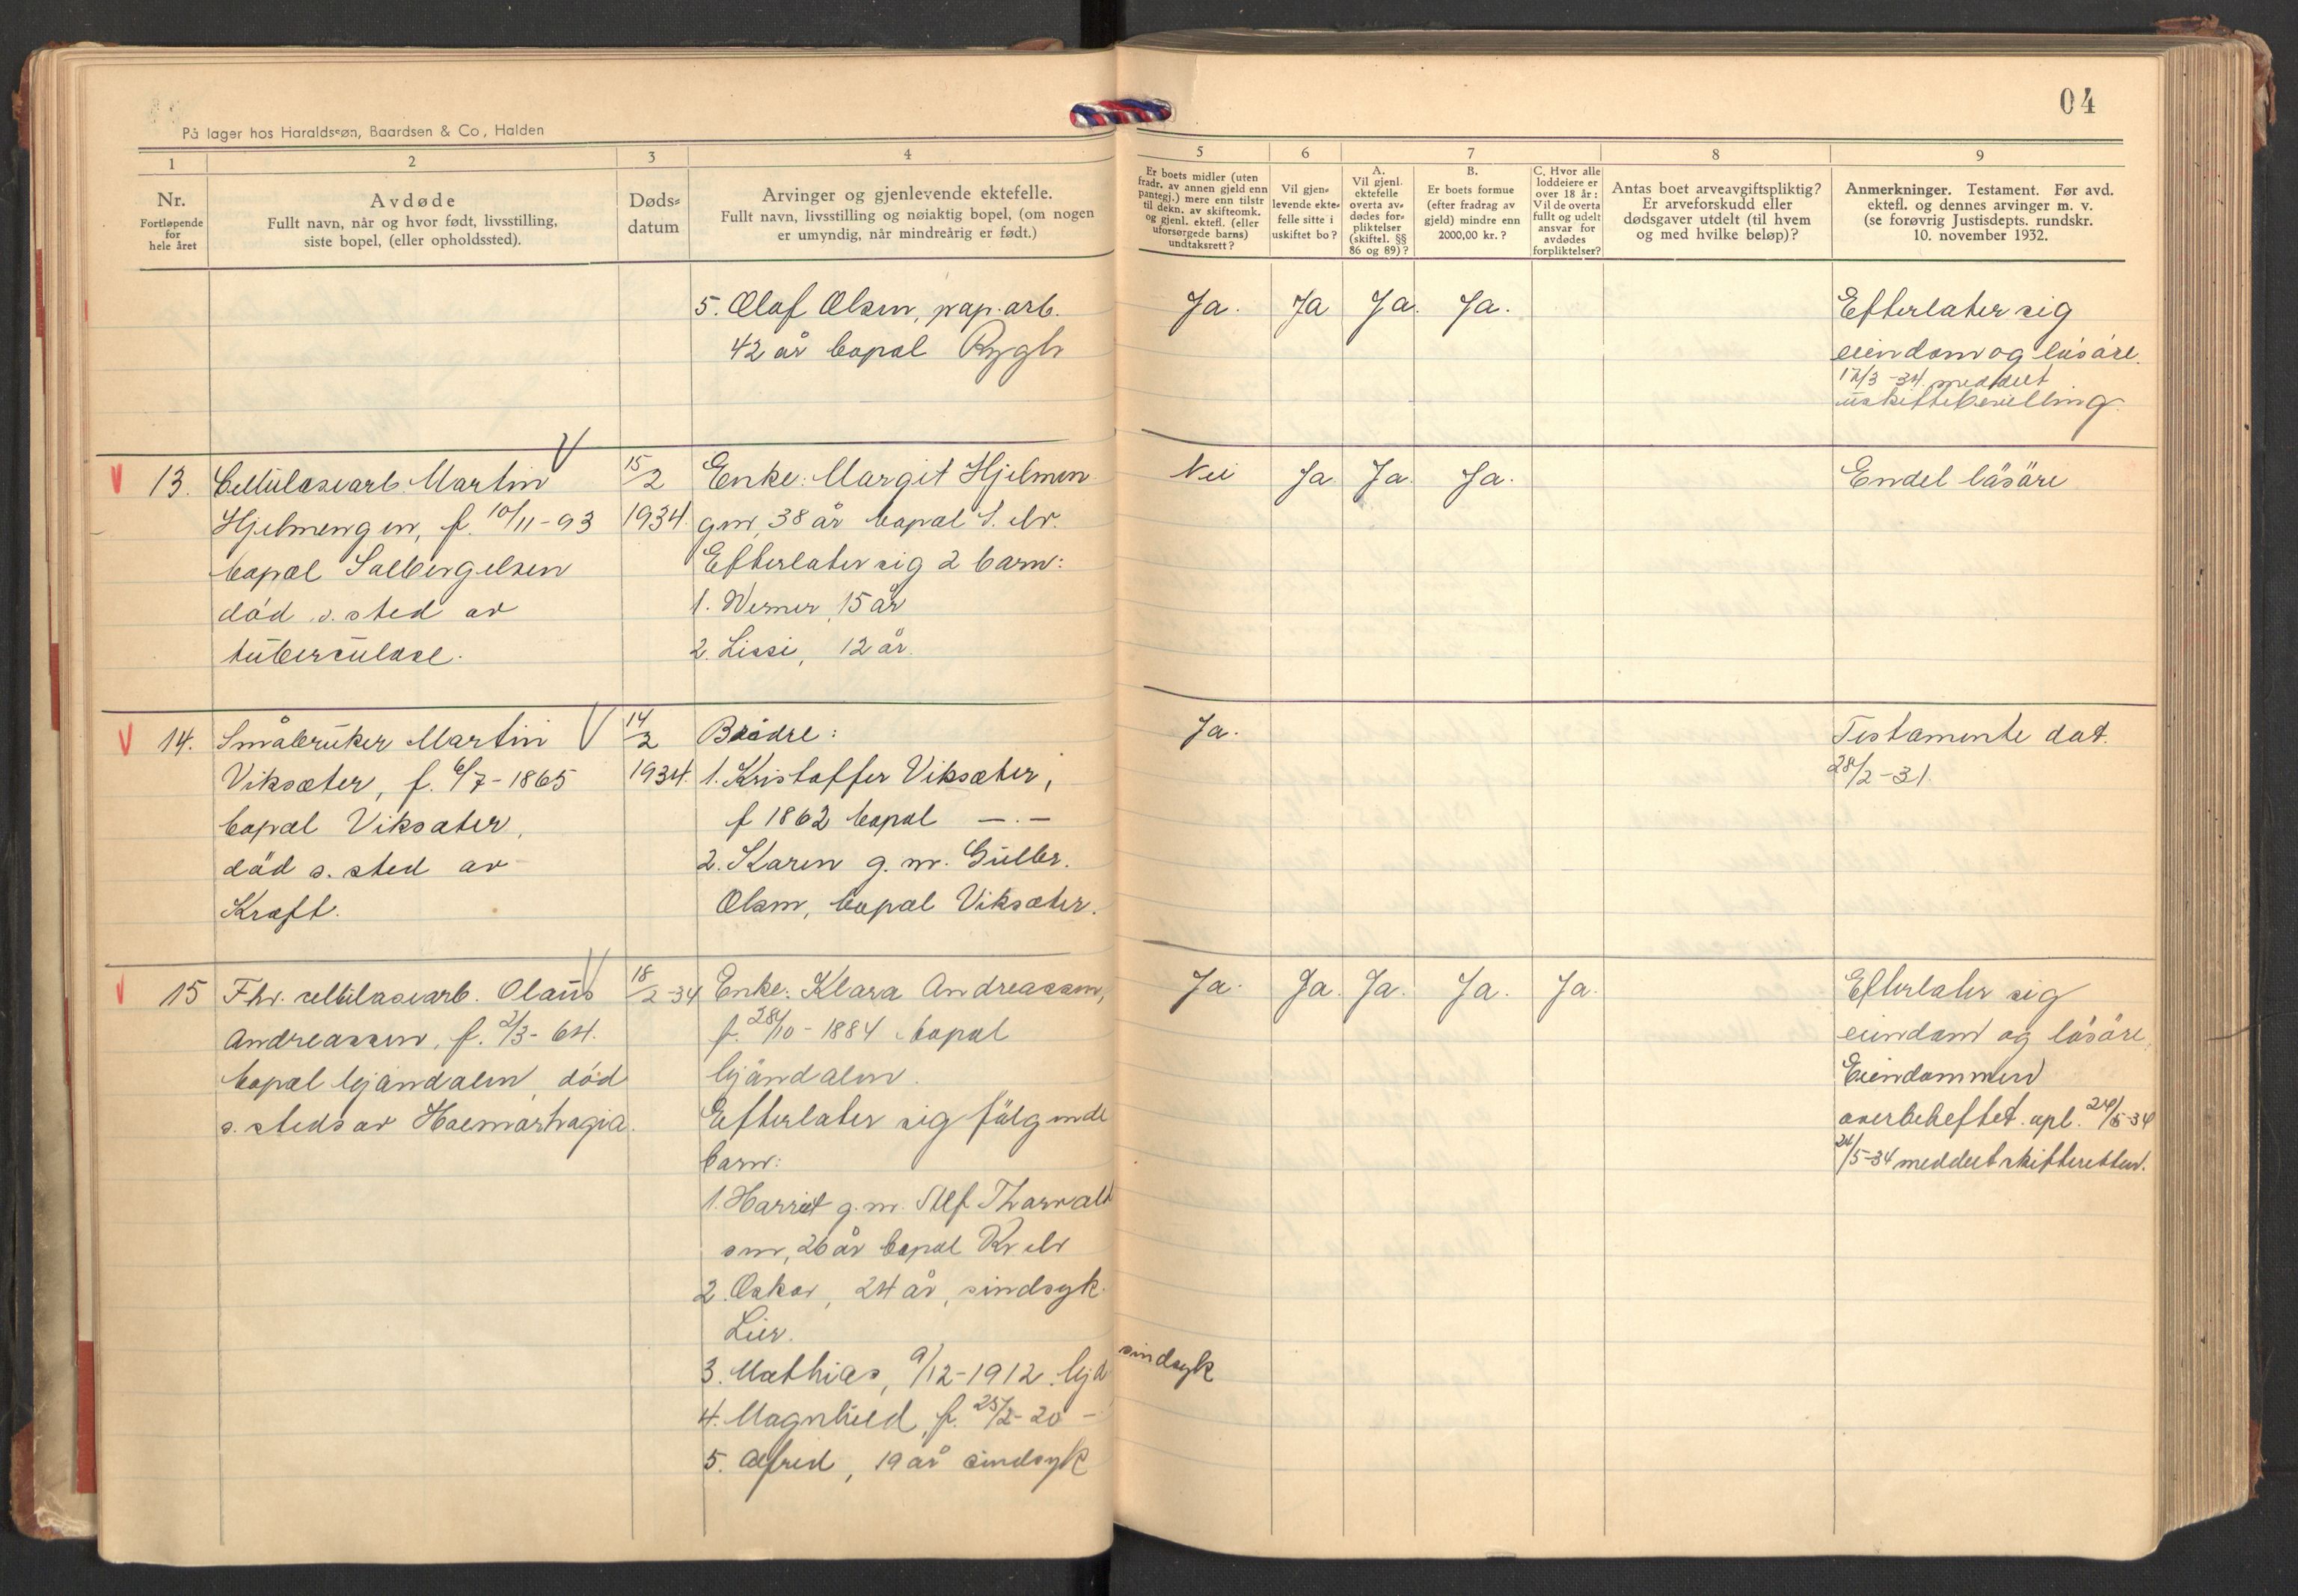 På lager hos Haraldssøn, Baardsen & Co, Halden
04
1 2 3 4
Nr.
Fortløpende
for
hele året
Avdøde
Fullt navn, når og hvor født, livsstilling,
siste bopel, (eller opholdssted).
Døds-
datum
Arvinger og gjenlevende ektefelle.
Fullt navn, livsstilling og nøiaktig bopel, (om nogen
er umyndig, når mindreårig er født.)
5 6 7 8 9
Er boets midler (uten
fradr. av annen gjeld enn
pantegj.) mere enn tilstr
til dekn. av skifteomk.
og gjenl. ektefl. (eller
uforsørgede barns)
undtaksrett?
Vil gjen-
levende ekte-
felle sitte i
uskiftet bo?
A.
Vil gjenl.
ektefelle
overta av-
dødes for-
pliktelser
(skiftel. §§
86 og 89)?
B.
Er boets formue
(efter fradrag av
gjeld) mindre enn
2000,00 kr.?
C. Hvor alle
loddeiere er
over 18 år:
Vil de overta
fullt og udelt
ansvar for
avdødes
forpliktelser?
Antas boet arveavgiftspliktig?
Er arveforskudd eller
dødsgaver utdelt (til hvem
og med hvilke beløp)?
Anmerkninger. Testament. Før avd.
ektefl. og dennes arvinger m. v.
(se forøvrig Justisdepts. rundskr.
10. november 1932.
5. Olaf Olsen, pap.arb.
42 år bopæl Rygh
Ja. Ja Ja. Ja.
Efterlater sig
eiendom og løsøre.
17/3-34 meddelt
uskiftebevilling.
V 13.
Cellulosearb. Martin
Hjelmengen, f. 10/11-93
bopæl Solbergelven
død s. sted av
tuberculose.
15/2
1934.
Enke: Margit Hjelmen
gen, 38 år bopæl S. elv.
Efterlater sig 2 barn:
1. Werner, 15 år
2. Lissi, 12 år.
Nei Ja Ja. Ja.
Endel løsøre
V 14.
Småbruker Martin V
Viksæter, f. 6/7-1865
bopæl Viksæter,
død s. sted av
Kræft.
14/2
1934.
Brødre:
1. Kristoffer Viksæter,
f 1862 bopæl —.—
2. Karen g. m. Gulbr.
Olsen, bopæl Viksæter.
Ja.
Testamente dat.
28/2-31.
V 15
Fhv. cellulosearb. Olaus
Andreassen, f. 2/3-64.
bopæl Mjøndalen, død
s. steds av Haemorhagia.
18/2-34
Enke: Klara Andreassen,
f. 28/10-1884 bopæl
Mjøndalen.
Efterlater sig følgende
barn:
1. Harriet g. m. Alf Thorvald
sen, 26 år bopæl Kr elv
2. Oskar, 24 år, sindsyk
Lier.
3. Mathias, 9/12-1912. Mjd sindsyk
4. Magnhild, f. 25/2-20 —
5. Alfred, 19 år sindsyk
Ja. Ja. Ja. Ja. Ja.
Efterlater sig
eiendom og løsøre.
Eiendommen
overbeheftet. opl. 24/5-34
24/5-34 meddelt skifteretten.